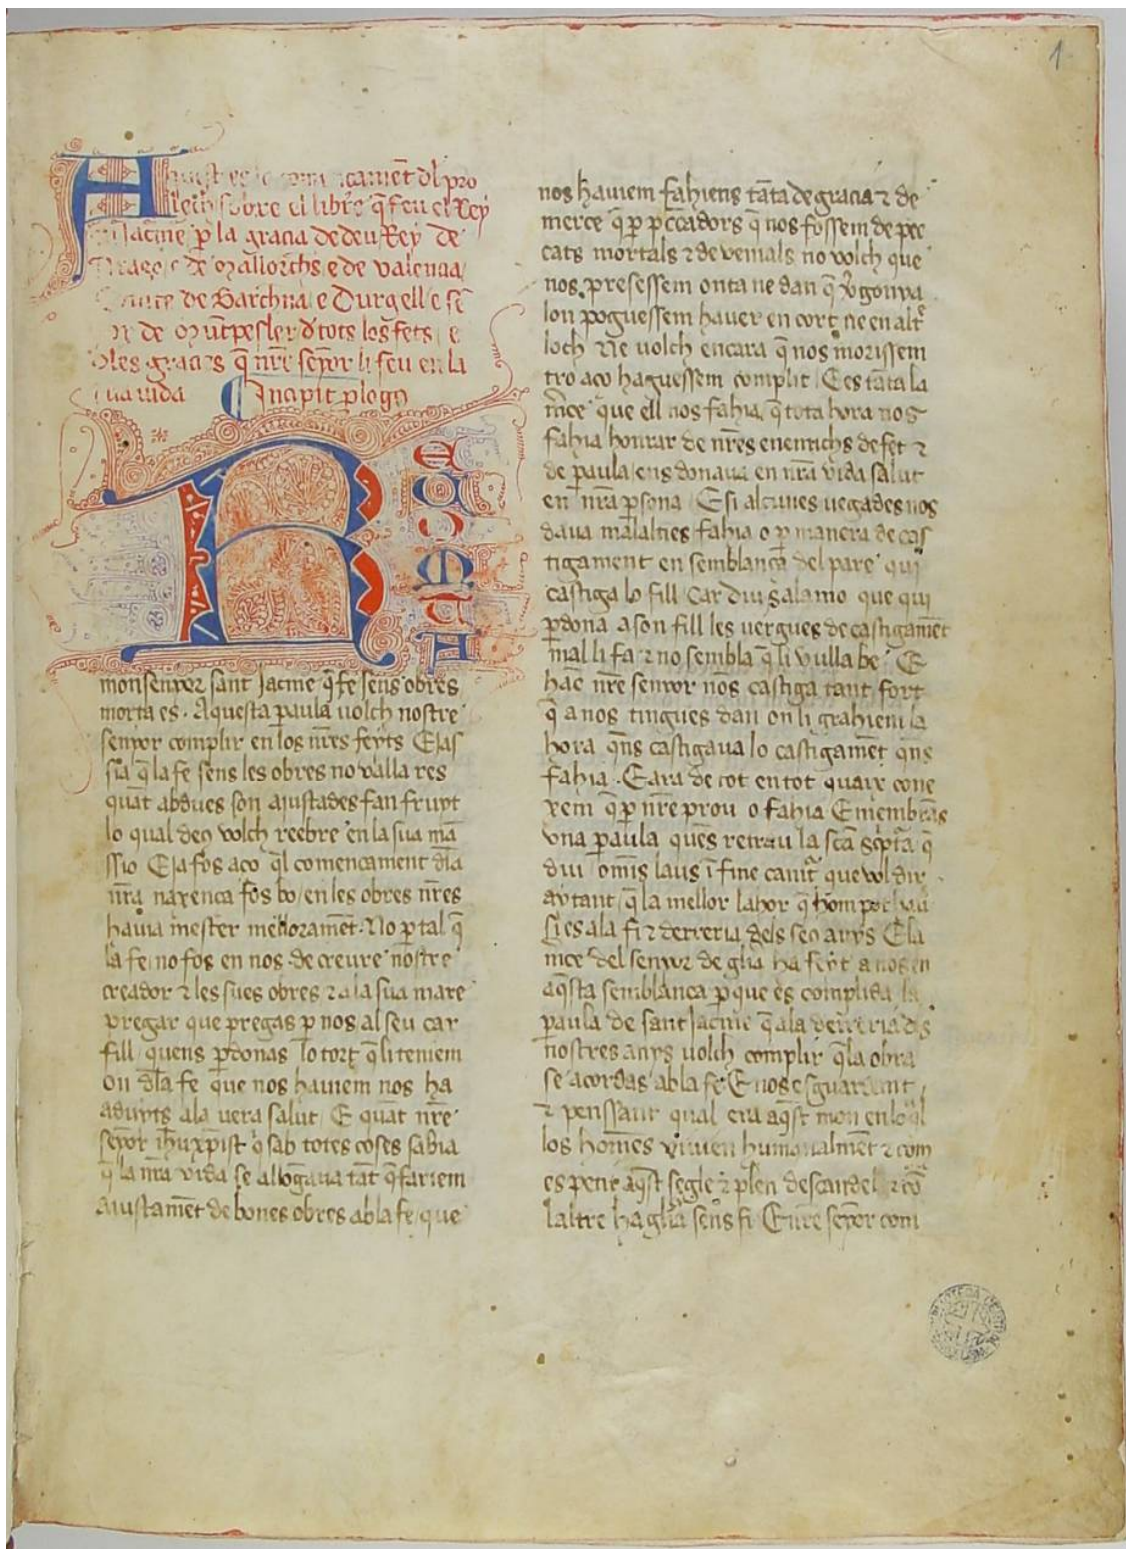 1
Aquest es lo comencamēt dl pro
lech sobre el libre q̄ feu el Rey
Jacme p̱ la gracia de deu Rey de
Arago e de mallorchs e de valencia
Comte de Barchna e Durgell e sē
or de mūtpesler d tots los fets e
dles gracies q̄ nr̄e seyor li feu en la
sua uida Incipit plogꝰ
RECOMTA
monsenyor sant Jacme q̄ fe sens obres
morta es. Aquesta paula uolch nostre
senyor complir en los nr̄es feyts E jas
sia q̄ la fe sens les obres no valla res
quāt abdues son ajustades fan fruyt
lo qual deu volch reebre en la sua mā
sio E ja fos aco q̄l comencament dla
nr̄a naxenca fos bo en les obres nr̄es
havia mester melloramēt. No p̱ tal q̄
la fe no fos en nos de creure nostre
creador ⁊ les sues obres ⁊ a la sua mare
pregar que pregas p̱ nos al seu car
fill quens p̱donas lo tort q̄ li teniem
On dla fe que nos haviem nos ha
aduyts ala vera salut E quāt nr̄e
seyor ihūxpist q̄ sab totes coses sabia
q̄ la nr̄a vida se allōgaua tāt q̄ fariem
ajustamēt de bones obres ab la fe que
nos haviem fahiens tāta de gracia ⁊ de
merce q̄ p̱ p̱ccadors q̄ nos fossem de pec
cats mortals ⁊ de venials no volch que
nos presessem onta ne dan q̄ v̄gonya
lon poguessem haver en cort ne en altr̄
loch Ne uolch encara q̄ nos morissem
tro aco haguessem complit E es tāta la
m̄ce que ell nos fahia q̄ tota hora nos
fahia honrar de nr̄es enemichs de fet ⁊
de paula ens donaua en nr̄a vida salut
en nr̄a p̱sona E si alcunes vegades nos
daua malalties fahia o p̱ manera de cas
tigament en semblanca del pare qui
castiga lo fill Car diu Salamo que qui
p̱dona a son fill les vergues de castigamēt
mal li fa ⁊ no sembla q̄ li vulla be E
hāc nr̄e senyor nos castiga tant fort
q̄ a nos tingues dan on li grahiem la
hora q̄ns castigaua lo castigamēt q̄ns
fahia. E ara de tot en tot quaix cone
xem q̄ p̱ nr̄e prou o fahia E membrās
vna paula quēs retrau la scā scp̄tā q̄
diu om̄is laus ī fine canit̄ que vol dir
aytant q̄ la mellor lahor q̄ hom pot
si es ala fi ⁊ derreria dels seus anys E la
m̄ce del senyor de gl̄ia ha feyt a nos en
aq̄sta semblanca p̱ que es complida la
paula de sant Jacme q̄ ala derreria dls
nostres anys uolch complir q̄ la obra
se acordas ab la fe E nos esguardant
⁊ penssant qual era aq̄st mon en lo q̄l
los homēs viuen humanalmēt ⁊ com
es petit aq̄st segle ⁊ plen descandel ⁊ cō
laltre ha gl̄ia sens fi E nr̄e seyor com